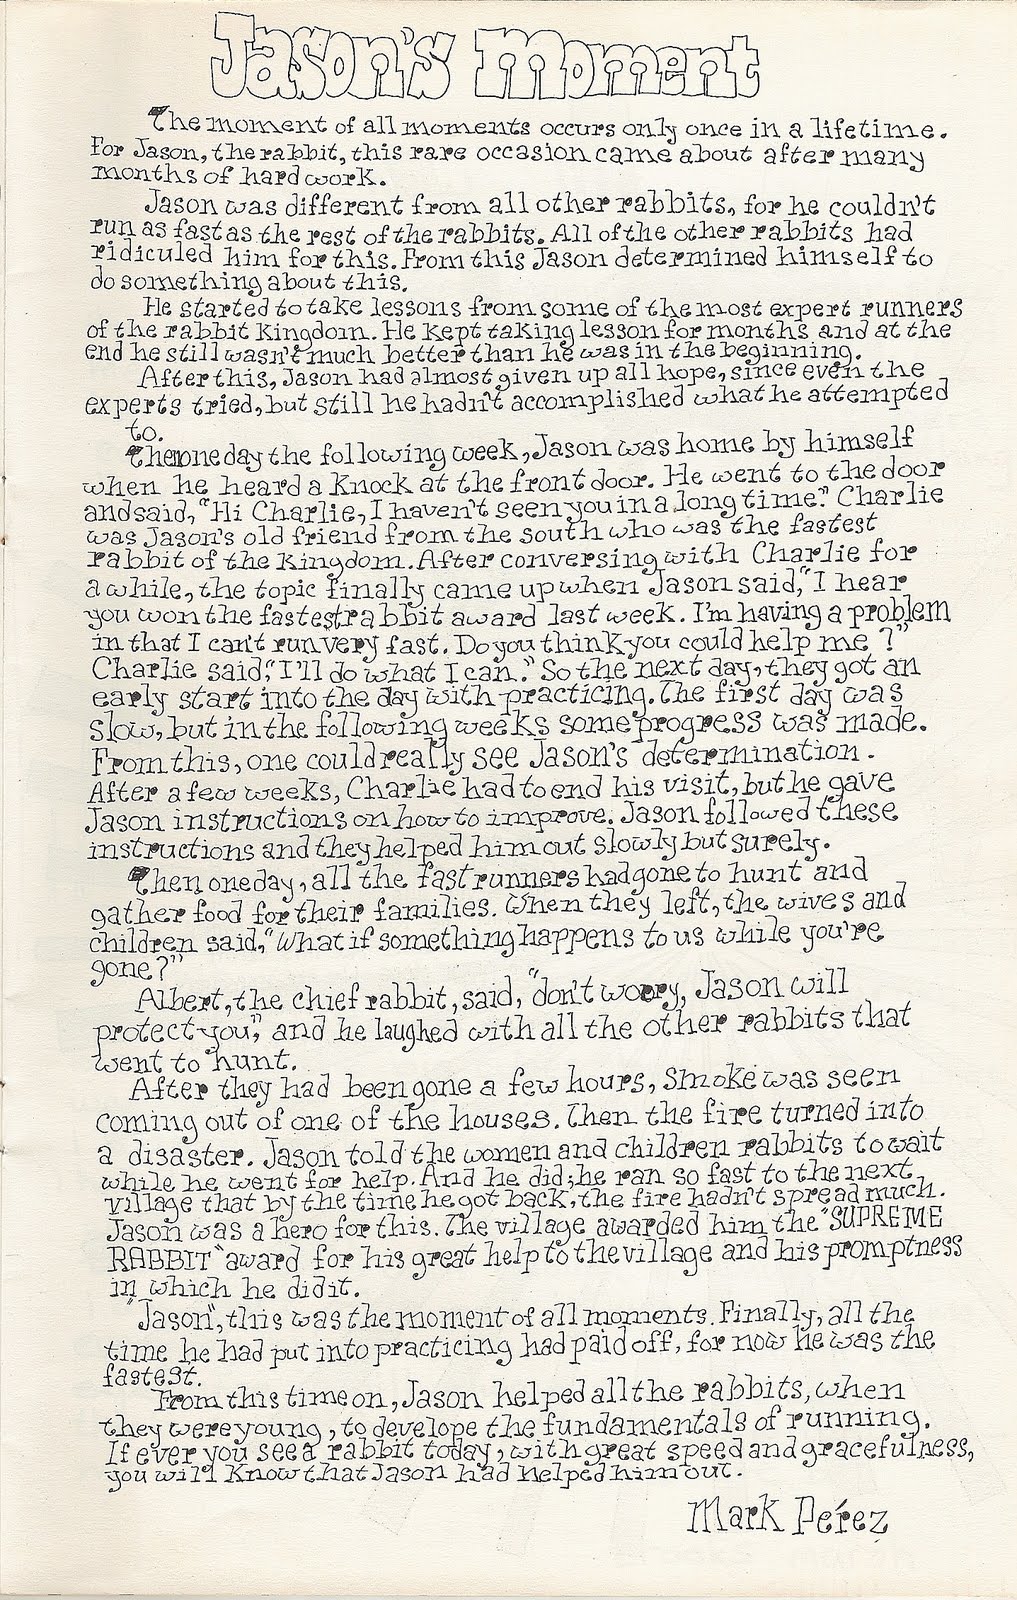 Jason's Moment
The moment of all moments occurs only once in a lifetime.
For Jason, the rabbit, this rare occasion came about after many
months of hard work.
Jason was different from all other rabbits, for he couldn't
run as fast as the rest of the rabbits. All of the other rabbits had
ridiculed him for this. From this Jason determined himself to
do something about this.
He started to take lessons from some of the most expert runners
of the rabbit kingdom. He kept taking lesson for months and at the
end he still wasn't much better than he was in the beginning.
After this, Jason had almost given up all hope, since even the
experts tried, but still he hadn't accomplished what he attempted
to.
Then one day the following week, Jason was home by himself
when he heard a knock at the front door. He went to the door
and said, "Hi Charlie, I haven't seen you in a long time." Charlie
was Jason's old friend from the south who was the fastest
rabbit of the kingdom. After conversing with Charlie for
a while, the topic finally came up when Jason said, "I hear
you won the fastest rabbit award last week. I'm having a problem
in that I can't run very fast. Do you think you could help me?"
Charlie said, "I'll do what I can." So the next day, they got an
early start into the day with practicing. The first day was
slow, but in the following weeks some progress was made.
From this, one could really see Jason's determination.
After a few weeks, Charlie had to end his visit, but he gave
Jason instructions on how to improve. Jason followed these
instructions and they helped him out slowly but surely.
Then one day, all the fast runners had gone to hunt and
gather food for their families. When they left, the wives and
children said, "What if something happens to us while you're
gone?"
Albert, the chief rabbit, said, "don't worry, Jason will
protect you", and he laughed with all the other rabbits that
went to hunt.
After they had been gone a few hours, smoke was seen
coming out of one of the houses. Then the fire turned into
a disaster. Jason told the women and children rabbits to wait
while he went for help. And he did; he ran so fast to the next
village that by the time he got back, the fire hadn't spread much.
Jason was a hero for this. The village awarded him the "SUPREME
RABBIT" award for his great help to the village and his promptness
in which he did it.
"Jason", this was the moment of all moments. Finally, all the
time he had put into practicing had paid off, for now he was the
fastest.
From this time on, Jason helped all the rabbits, when
they were young, to develope the fundamentals of running.
If ever you see a rabbit today, with great speed and gracefulness,
you will know that Jason had helped him out.
Mark Pérez